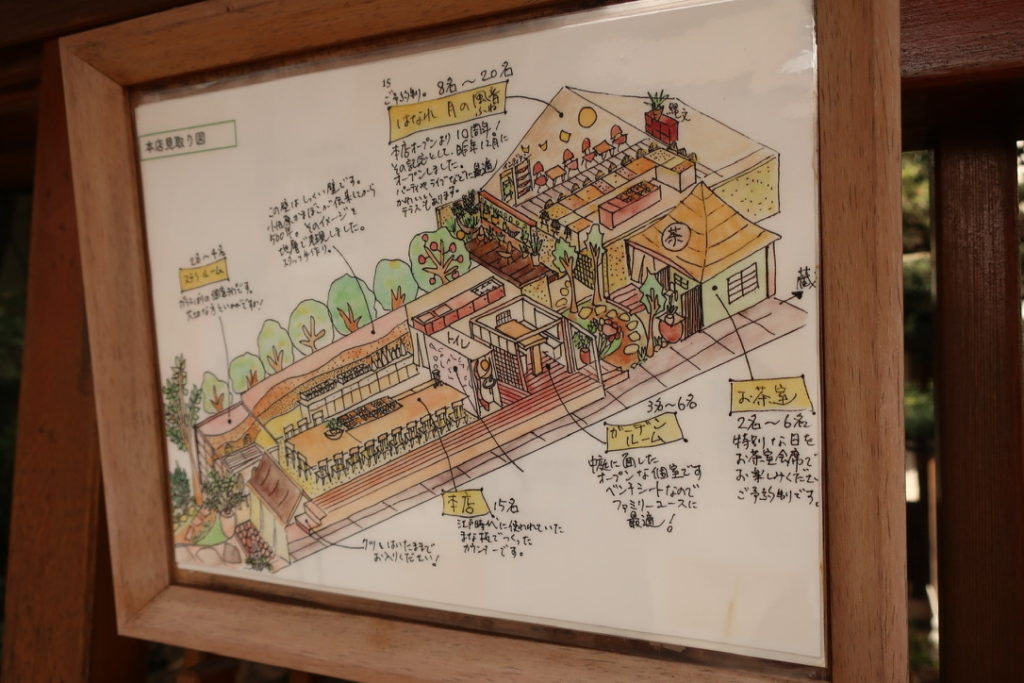 本店見取り図
ご予約制。 8名〜20名
はなれ 月の風音
本店オープンより10周年!
その記念として、昨年12月に
オープンしました。
パーティやライブなどに最適
かわいい
テラスもあります。
この壁はしっくい壁です。
500年。そのイメージを
地層で表現しました。
スタッフ手作り。
2名〜4名
大切な方といかがですか!
トイレ
茶
蔵
本店 15名
江戸時代に使われていた
まな板でつくった
カウンターです。
クツもはいたままで
お入りください!
3名〜6名
ガーデン
ルーム
中庭に面した
オープンな個室です
ベンチシートなので
ファミリーユースに
最適!
お茶室
2名〜6名
特別な日を
お茶室会席で
お楽しみください
ご予約制です。